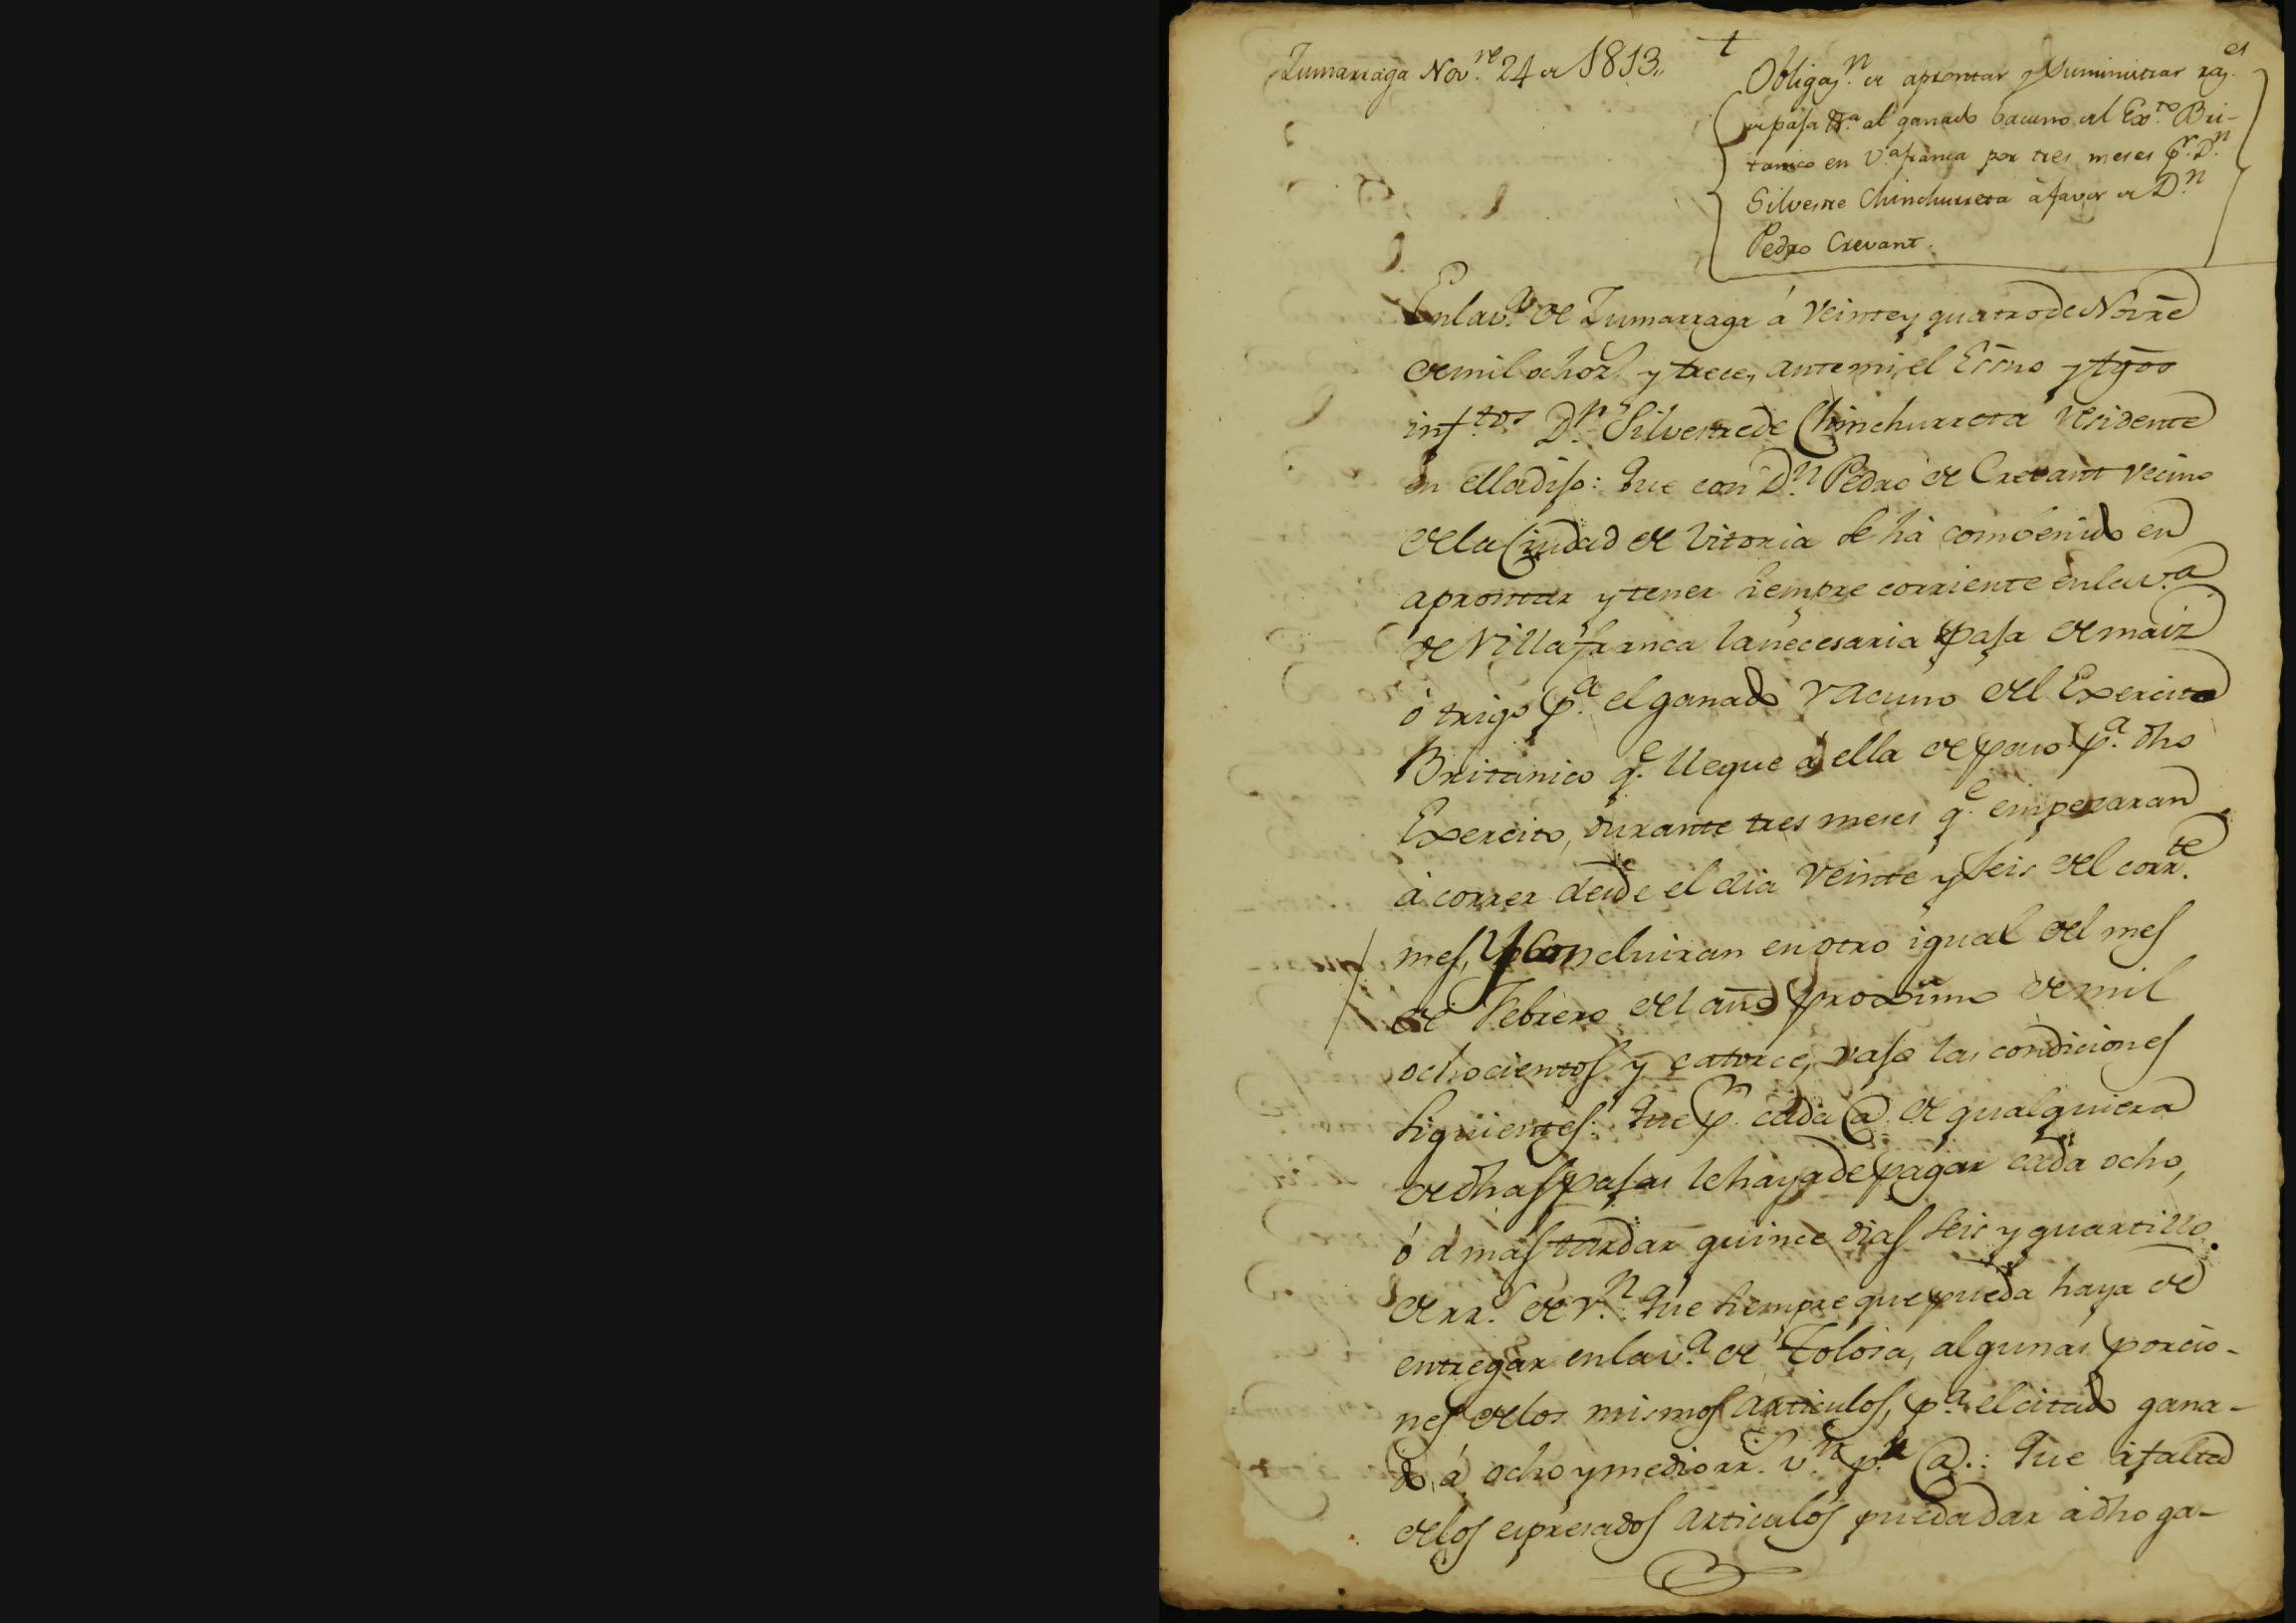 Zumarraga Nov.re 24 de 1813,,
t
Obligaz.n de aprontar y suministrar raz.es
de paja &.a al ganado bacuno del Ex.to Bri-
tanico en V.afranca por tres meses p.r D.n
Silvestre Chinchurreta à favor de D.n
Pedro Crevant.
Enlav.a de Zumarraga á veinte y quatro de Novre
de mil ochoz.s y trece, ante mi el Essno y tgos
inf.tos D.n Silvestre de Chinchurreta residente
en ella dijo: Que con D.n Pedro de Crevant vecino
dela Ciudad de Vitoria se hà combenido en
aprontar y tener siempre corriente enlav.a
de Villafranca lanecesaria paja de maiz
ó trigo p.a el ganado vacuno del Exercito
Britanico q.e llegue à ella de paso p.a dho
Exercito, durante tres meses q.e empezaran
à correr desde el dia veinte y seis del corr.te
mes, y concluiran en otro igual del mes
de Febrero del año proximo de mil
ochocientos y catorce, vajo las condiciones
siguientes: Que p.r cada @ de qualquiera
de dhas pajas le haya de pagar cada ocho,
ó á mas tardar quince dias seis y quartillo
de rr.s de v.n: Que siempre que pueda haya de
entregar enlav.a de Tolosa, algunas porcio-
nes delos mismos articulos, p.a el citado gana-
do, á ocho y medio rr.s v.n p.r @.: Que à falta
delos espresados articulos pueda dar à dho ga-